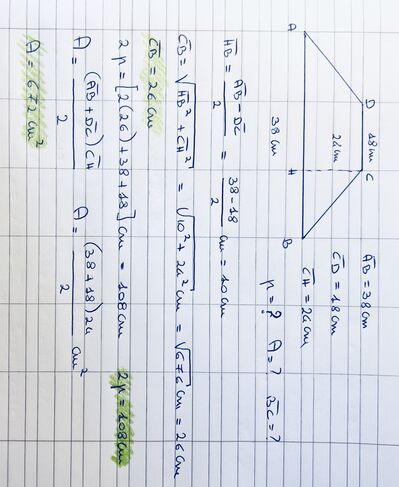 D 18cm C
24cm
A H B
38cm
A̅B̅=38cm
C̅D̅=18cm
C̅H̅=24cm
p=? A=? B̅C̅=?
H̅B̅ = (A̅B̅-D̅C̅)/2 = (38-18)/2 cm = 10cm
C̅B̅ = √(H̅B̅²+C̅H̅²) = √(10²+24²) cm = √676 cm = 26cm
C̅B̅=26cm
2p=[2(26)+38+18]cm = 108cm 2p=108cm
A = (A̅B̅+D̅C̅)C̅H̅/2 A = (38+18)24/2 cm²
A=672cm²